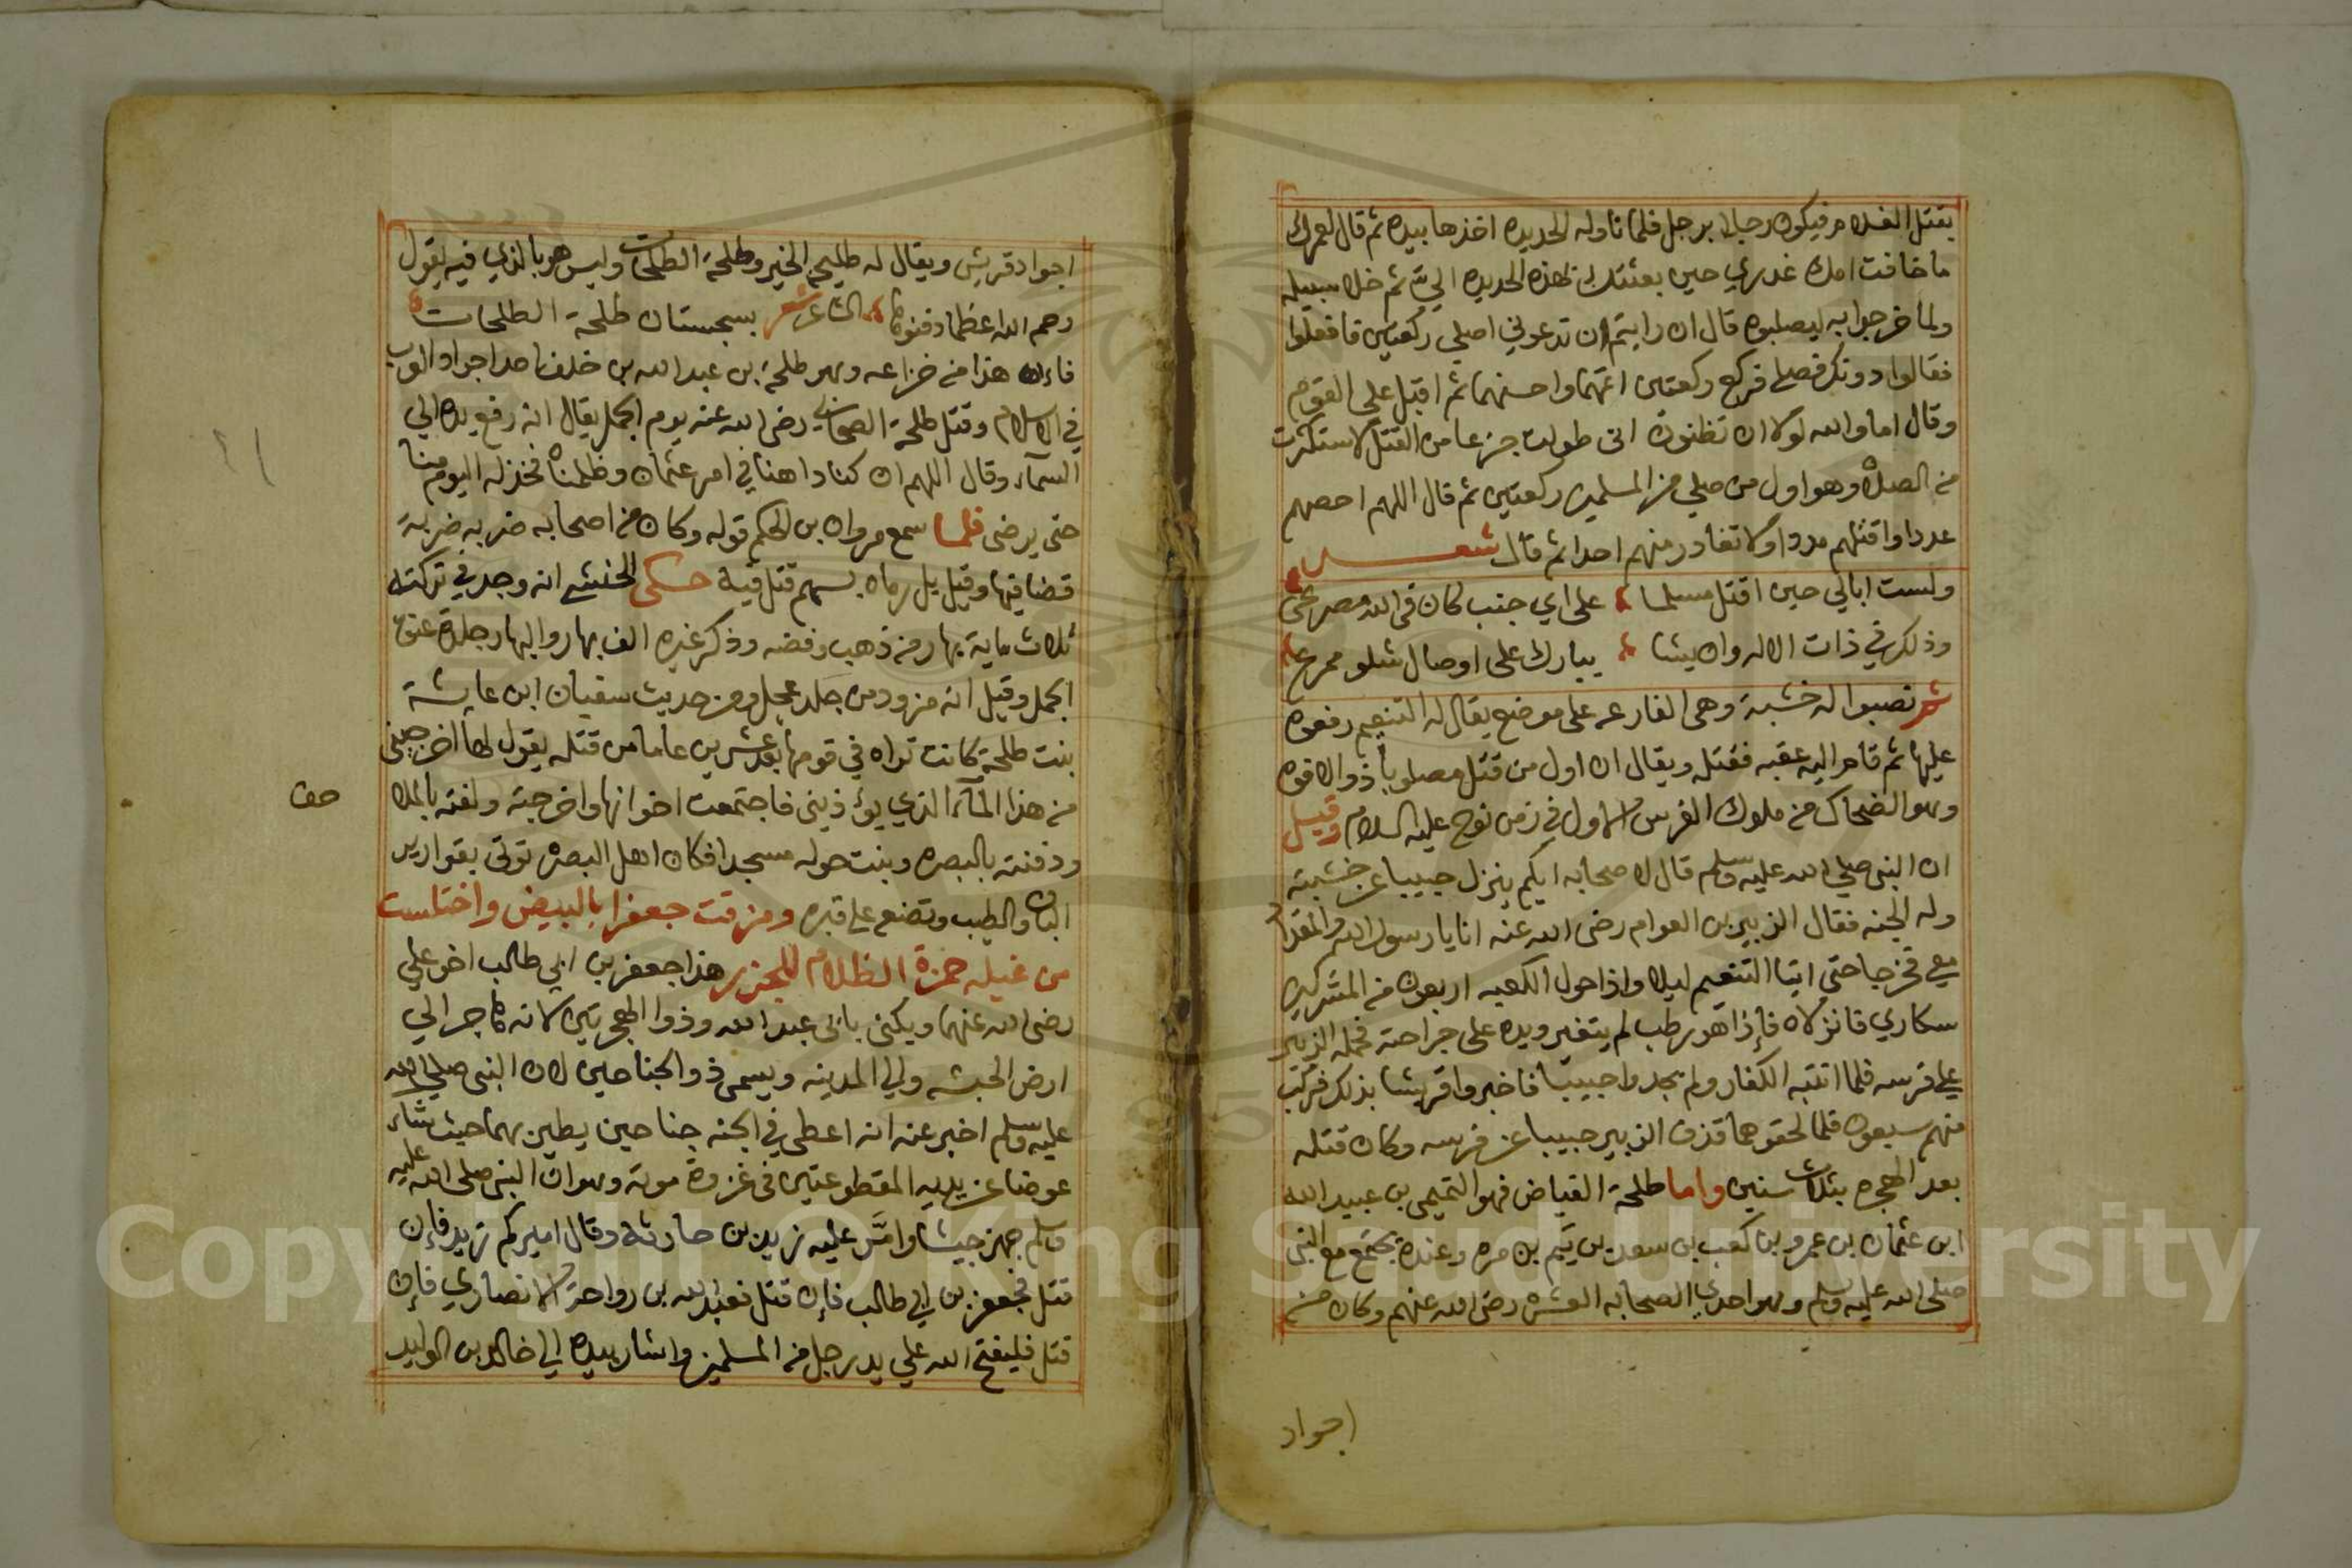 بقتل الغلام فيكون رجلا برجل فلما ناوله الحديده اخذها بيده ثم قال لعمرك
ما خافت امك غدري حين بعثتك بهذه الحديده الي ثم خلا سبيله
ولما خرجوا به ليصلبوه قال ان رايتم ان تدعوني اصلي ركعتين فافعلوا
فقالوا دونك فصلي فركع ركعتين اتمهما واحسنهما ثم اقبل على القوم
وقال اما والله لولا ان تظنون اني طولت جزعا من القتل لاستكثرت
من الصلاة وهو اول من صلي من المسلمين ركعتين ثم قال اللهم احصهم
عددا واقتلهم مددا ولا تغادر منهم احدا ثم قال شعر
ولست ابالي حين اقتل مسلما على اي جنب كان في الله مصرعي
وذلك في ذات الاله وان يشا يبارك على اوصال شلو ممزع
ثم نصبوا له خشبة وهي الفارعه على موضع يقال له التنعيم رفعوه
عليها ثم قام اليه عقبه فقتله ويقال ان اول من قتل مصلوبا ذو الافوه
وهو الضحاك من ملوك الفرس الاول في زمن نوح عليه السلام وقيل
ان النبي صلي الله عليه وسلم قال لاصحابه ايكم ينزل حبيبا عن خشبته
وله الجنه فقال الزبير بن العوام رضى الله عنه انا يا رسول الله والمقداد
معي فخرجا حتى اتيا التنعيم ليلا واذا حول الكعبه اربعون من المشركين
سكاري فانزلاه فإذا هو رطب لم يتغير ويده على جراحته فحمله الزبير
علي فرسه فلما انتبه الكفار ولم يجدوا حبيبا فاخبروا قريشا بذلك فركب
منهم سبعون فلما لحقوهما قذف الزبير حبيبا عن فرسه وكان قتله
بعد الهجره بثلاث سنين واما طلحة الفياض فهو التميمي بن عبيد الله
ابن عثمان بن عمرو بن كعب بن سعد بن تيم بن مره وعنده يجتمع مع النبي
صلى الله عليه وسلم وهو احدي الصحابه العشره رضى الله عنهم وكان من
اجواد
اجواد قريش ويقال له طليحه الخير وطلحة الطلحات وليس هو بالذي فيه يقول
الشاعر شعر رحم الله اعظما دفنوها بسجستان طلحة الطلحات
فاءن هذا من خزاعه وهو طلحة بن عبد الله بن خلف احد اجواد العرب
في الاسلام وقتل طلحة الصحابي رضى الله عنه يوم الجمل يقال انه رفع يده الي
السمآء وقال اللهم ان كنا داهنا في امر عثمان وظلمناه فخذ له اليوم منا
حتى يرضى فلما سمع مروان بن الحكم قوله وكان من اصحابه ضربه ضربة
قضا فيها وقيل بل رماه بسهم قتل فيه حكى الخنشي انه وجد في تركته
ثلاث ماية بهار من ذهب وفضه وذكر غيره الف بهار والبهار جلده عنق
الجمل وقيل انه مزود من جلد عجل ومن حديث سفيان ابن عايشة
بنت طلحة كانت تراه في قومها بعد عشرين عاما من قتله يقول لها اخرجيني
من هذا المآء الذي يوءذيني فاجتمعت اخوانها واخرجته ولفته بالملا
ودفنته بالبصره وبنت حوله مسجدا فكان اهل البصره توتى بقوارير
البان والطيب وتضع علي قبره ومزقت جعفرا بالبيض واختلست
من غيله حمزة الظلام للجزر هذا جعفر بن ابي طالب اخو علي
رضى الله عنهما ويكنى بابى عبد الله وذوا الهجرتين لانه هاجر الي
ارض الحبشه والي المدينه ويسمى ذو الجناحين لان النبي صلي الله
عليه وسلم اخبر عنه انه اعطي في الجنه جناحين يطير بهما حيث شاء
عوضا عن يديه المقطوعتين في غزوة موتة وهو ان النبي صلى الله عليه
وسلم جهز جيشا وامّر عليه زيد بن حارثه وقال اميركم زيد فإن
قتل فجعفر بن ابي طالب فإن قتل فعبد الله بن رواحة الانصاري فإن
قتل فليفتح الله علي يد رجل من المسلمين واشار بيده الي خالد بن الوليد